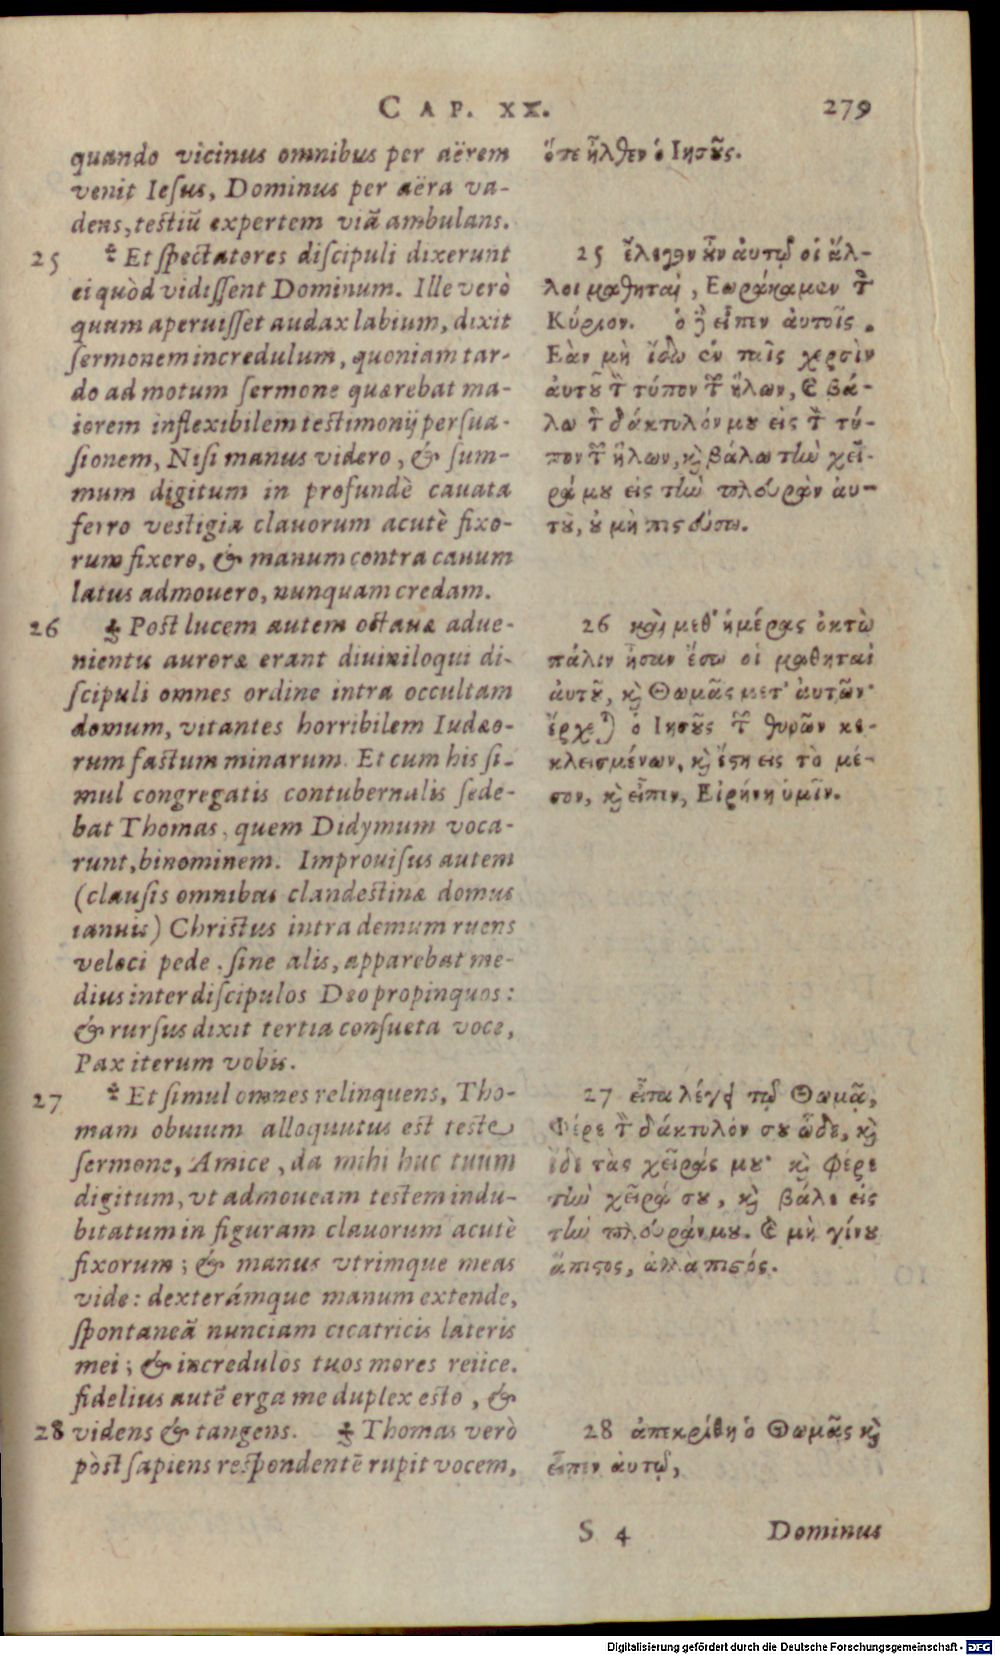 CAP. XX. 279
quando vicinus omnibus per aërem
venit Iesus, Dominus per aëra va-
dens, testiũ expertem viã ambulans.
25 Et spectatores discipuli dixerunt
ei quòd vidissent Dominum. Ille verò
quum aperuisset audax labium, dixit
sermonem incredulum, quoniam tar-
do ad motum sermone quærebat ma-
iorem inflexibilem testimonij persua-
sionem, Nisi manus videro, & sum-
mum digitum in profundè cauata
ferro vestigia clauorum acutè fixo-
rum fixero, & manum contra cauum
latus admouero, nunquam credam.
26 Post lucem autem octauæ adue-
nientis auroræ erant diuiniloqui di-
scipuli omnes ordine intra occultam
domum, vitantes horribilem Iudæo-
rum fastum minarum. Et cum his si-
mul congregatis contubernalis sede-
bat Thomas, quem Didymum voca-
runt, binominem. Improuisus autem
(clausis omnibus clandestinæ domus
ianuis) Christus intra domum ruens
veloci pede, sine alis, apparebat me-
dius inter discipulos Deo propinquos:
& rursus dixit tertia consueta voce,
Pax iterum vobis.
27 Et simul omnes relinquens, Tho-
mam obuium alloquutus est teste
sermone, Amice, da mihi huc tuum
digitum, vt admoueam testem indu-
bitatum in figuram clauorum acutè
fixorum; & manus vtrimque meas
vide: dexterámque manum extende,
spontaneã nunciam cicatricis lateris
mei; & incredulos tuos mores reiice.
fidelius autẽ erga me duplex esto, &
28 videns & tangens. Thomas verò
pòst sapiens respondentẽ rupit vocem,
ὅτε ἦλθεν ὁ Ιησοῦς.
25 ἔλεγον οὖν ἀυτῷ οἱ ἄλ-
λοι μαθηταὶ, Εωράκαμεν τὸν
Κύριον. ὁ δὲ εἶπεν ἀυτοῖς.
Εὰν μὴ ἴδω ἐν ταῖς χερσὶν
ἀυτοῦ τὸν τύπον τῶν ἥλων, καὶ βά-
λω τὸν δάκτυλόν μου εἰς τὸν τύ-
πον τῶν ἥλων, καὶ βάλω τὴν χεῖ-
ρά μου εἰς τὴν πλευρὰν ἀυ-
τοῦ, οὐ μὴ πιστεύσω.
26 καὶ μεθ' ἡμέρας ὀκτὼ
πάλιν ἦσαν ἔσω οἱ μαθηταὶ
ἀυτοῦ, καὶ Θωμᾶς μετ' ἀυτῶν·
ἔρχεται ὁ Ιησοῦς τῶν θυρῶν κε-
κλεισμένων, καὶ ἔστη εἰς τὸ μέ-
σον, καὶ εἶπεν, Εἰρήνη ὑμῖν.
27 εἶτα λέγει τῷ Θωμᾷ,
Φέρε τὸν δάκτυλόν σου ὧδε, καὶ
ἴδε τὰς χεῖράς μου· καὶ φέρε
τὴν χεῖρά σου, καὶ βάλε εἰς
τὴν πλευράν μου. καὶ μὴ γίνου
ἄπιστος, ἀλλὰ πιστός.
28 ἀπεκρίθη ὁ Θωμᾶς καὶ
εἶπεν ἀυτῷ,
S 4 Dominus
Digitalisierung gefördert durch die Deutsche Forschungsgemeinschaft - DFG